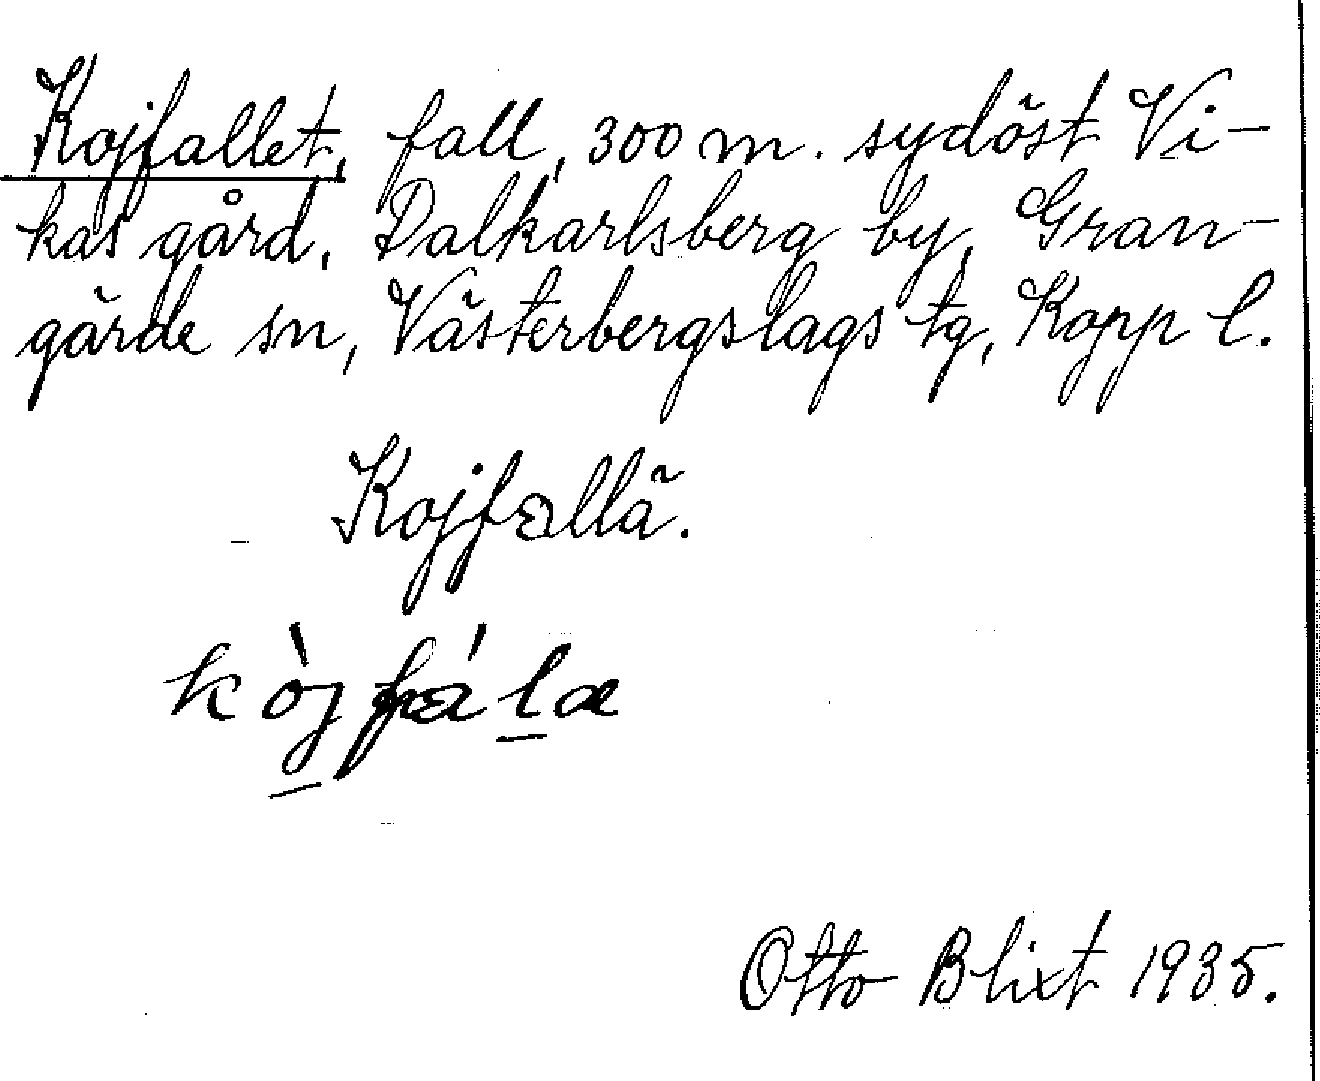 Kojfallet, fall, 300 m. sydöst Vi-
kas gård, Dalkarlsberg by, Gran-
gärde sn, Västerbergslags tg, Kopp l.
Kojfallä.
kòjfála
Otto Blixt 1935.